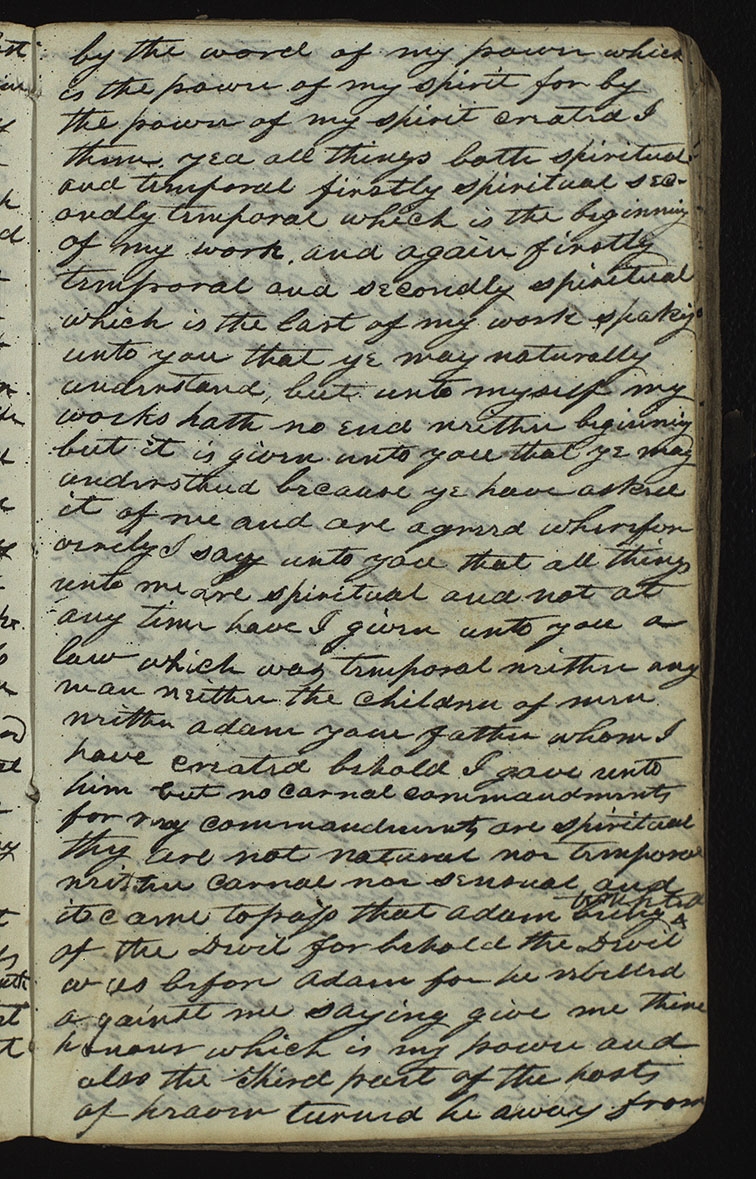 by the word of my power which
is the power of my spirit for by
the power of my spirit created I
them. yea all things both spiritual
and temporal firstly spiritual sec-
ondly temporal which is the beginning
of my work. and again firstly
temporal and secondly spiritual
which is the last of my work speaking
unto you that ye may naturally
understand, but unto myself my
works hath no end neither beginning
but it is given unto you that ye may
understand because ye have asked
it of me and are agreed wherefor
verily I say unto you that all things
unto me are spiritual and not at
any time have I given unto you a
law which was temporal neither any
man neither the children of men
neither adam your father whom I
have created behold I gave unto
him but no carnal commandments
for my commandments are spiritual
they are not natural nor temporal
neither carnal nor sensual and
it came to pass that adam being tempted
of the Devil for behold the Devil
was before Adam for he rebelled
against me saying give me thine
honour which is my power and
also the third part of the hosts
of heaven turned he away from